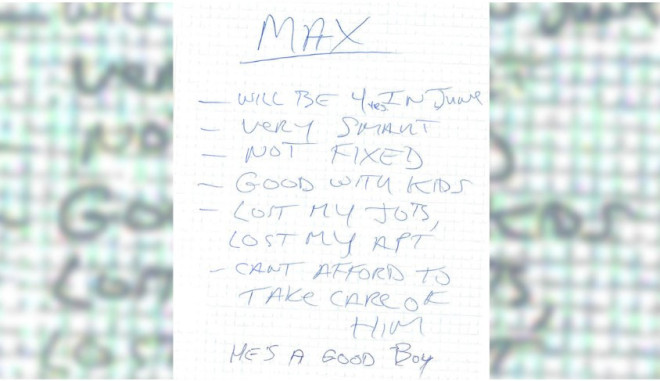 MAX
— WILL BE 4 yrs IN JUNE
— VERY SMART
— NOT FIXED
— GOOD WITH KIDS
— LOST MY JOB,
LOST MY APT
— CANT AFFORD TO
TAKE CARE OF
HIM
HE'S A GOOD BOY